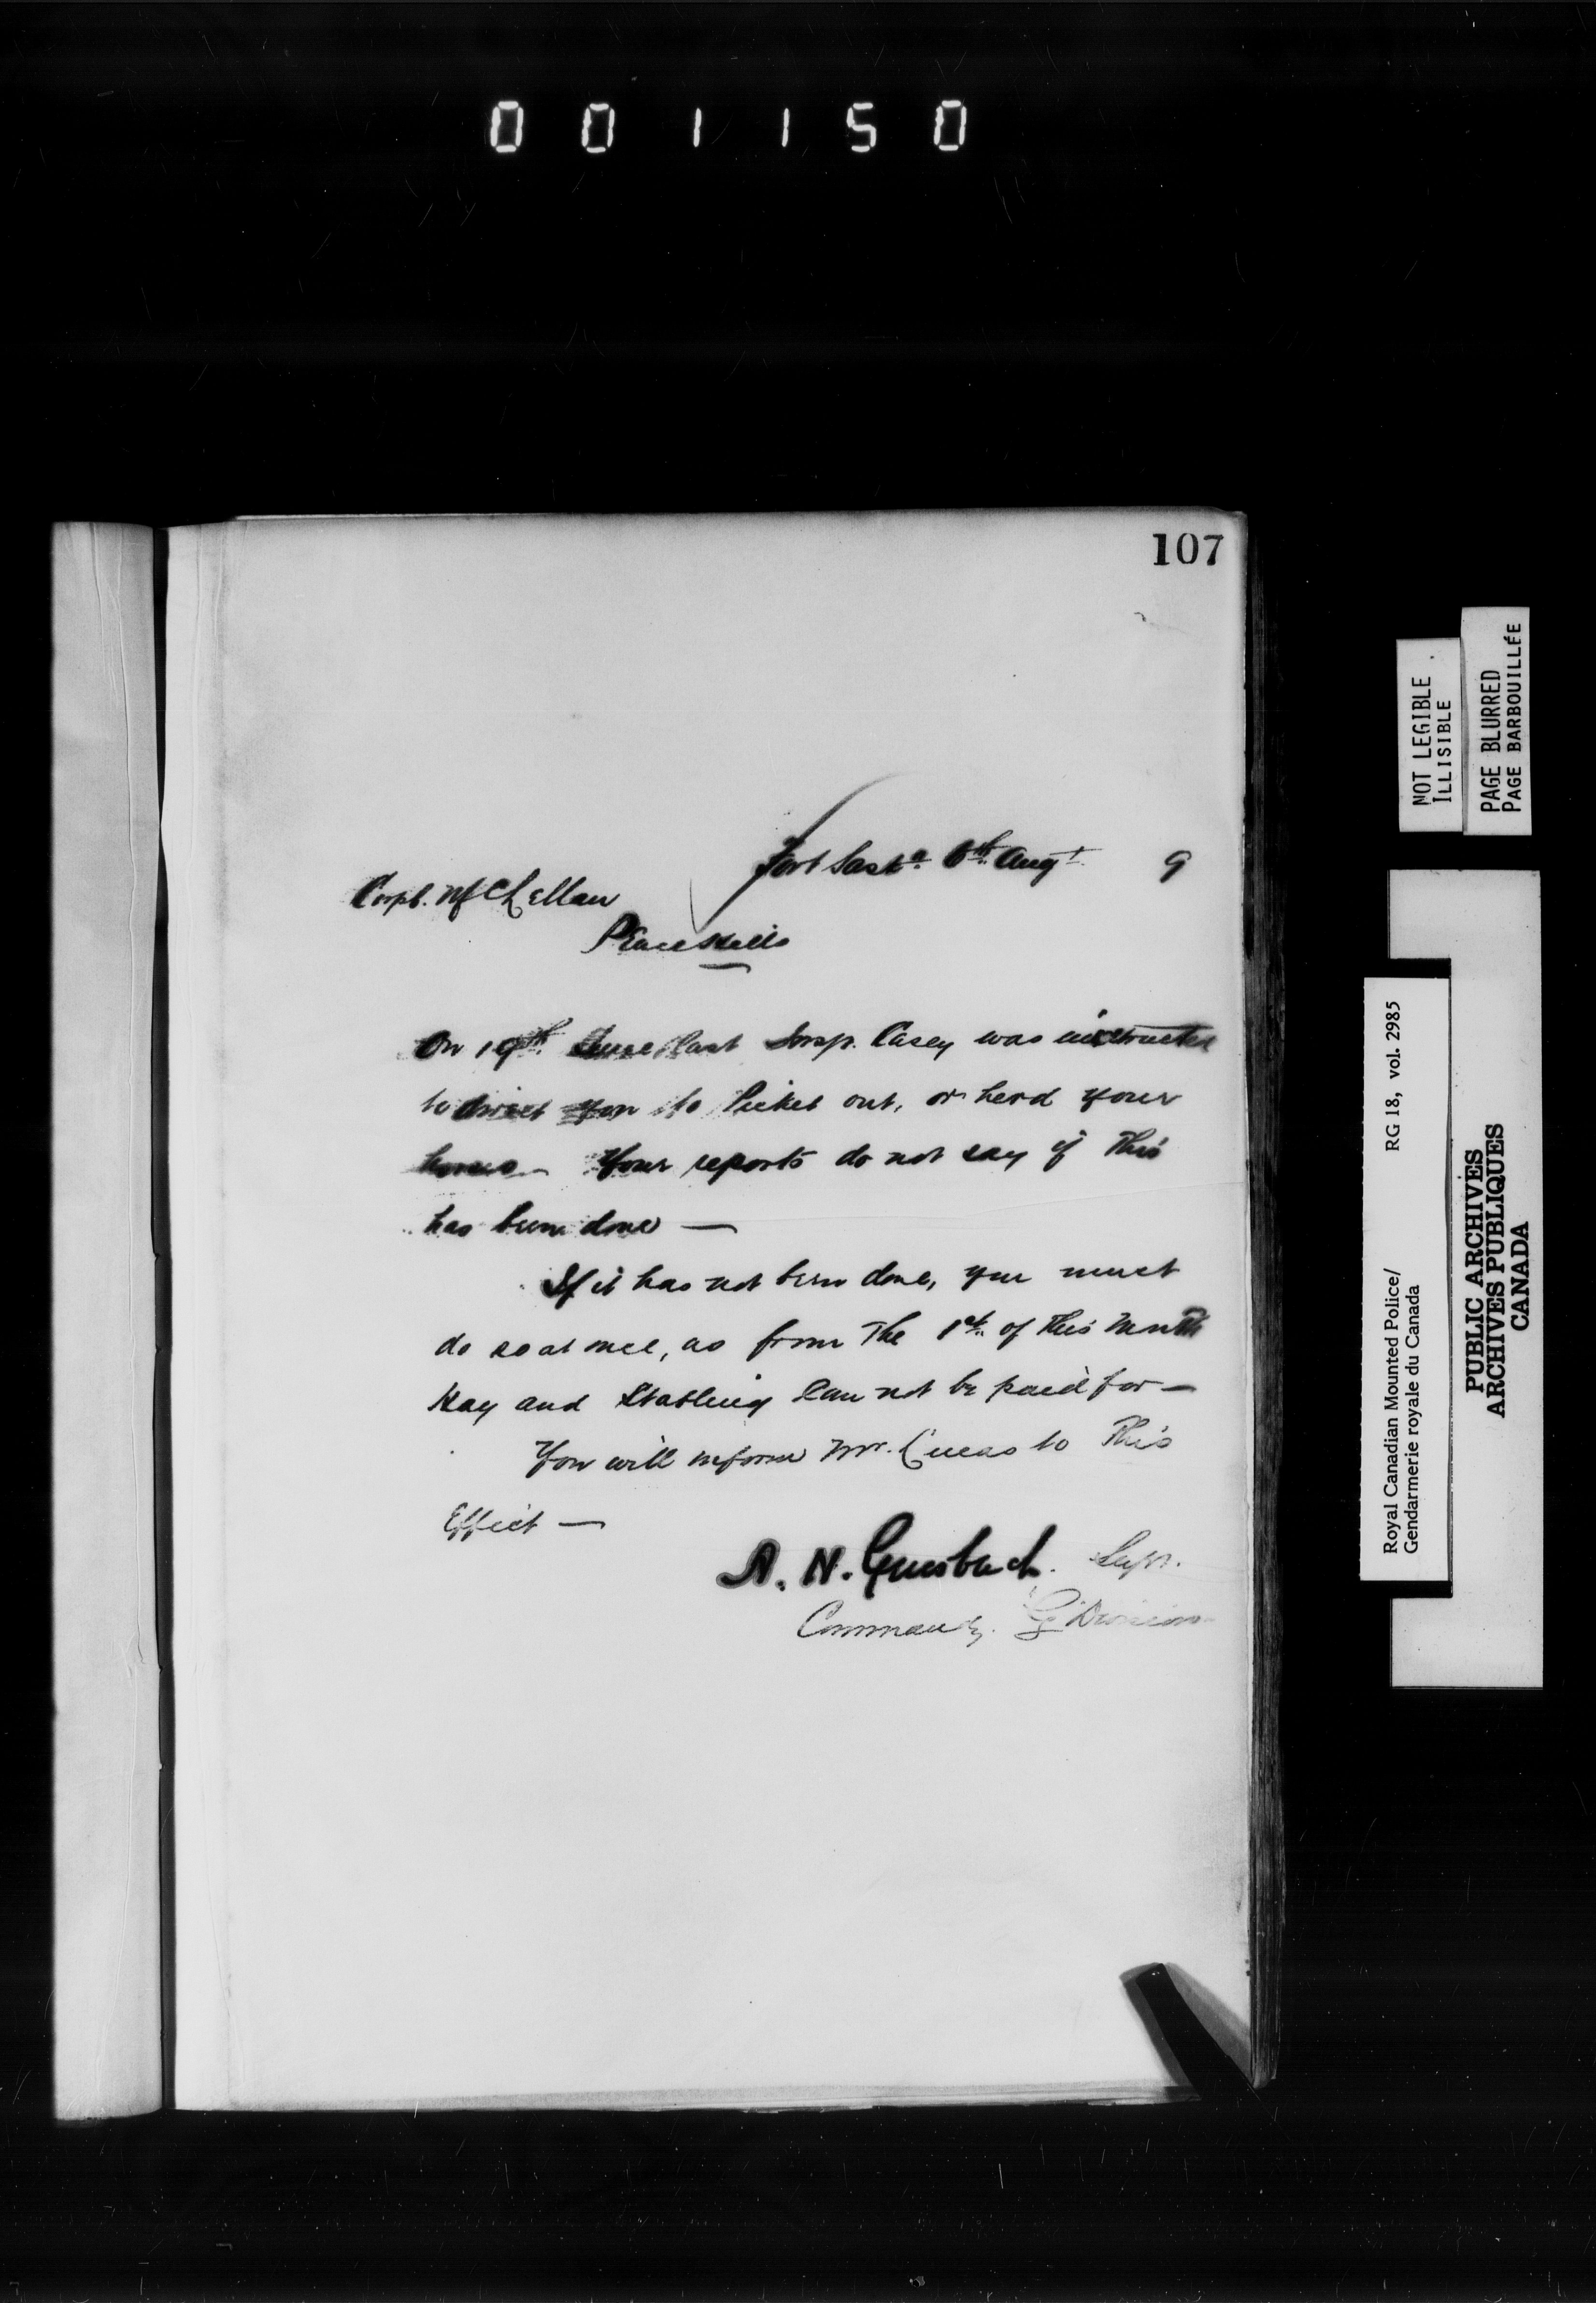 001150
107
Fort Sask^n. 6th. Augt. 9
Corpl. McLellan
Peace Hills
On 19th. June last Insp. Casey was instructed
to direct you to Picket out, or herd your
horses — Your reports do not say if this
has been done —
If it has not been done, you must
do so at once, as from the 1st. of this month
Hay and Stabling can not be paid for —
You will inform Mr. Lucas to this
Effect —
A. H. Griesbach. Supt.
Commandg. G Division
NOT LEGIBLE
ILLISIBLE
PAGE BLURRED
PAGE BARBOUILLÉE
Royal Canadian Mounted Police/ RG 18, vol. 2985
Gendarmerie royale du Canada
PUBLIC ARCHIVES
ARCHIVES PUBLIQUES
CANADA